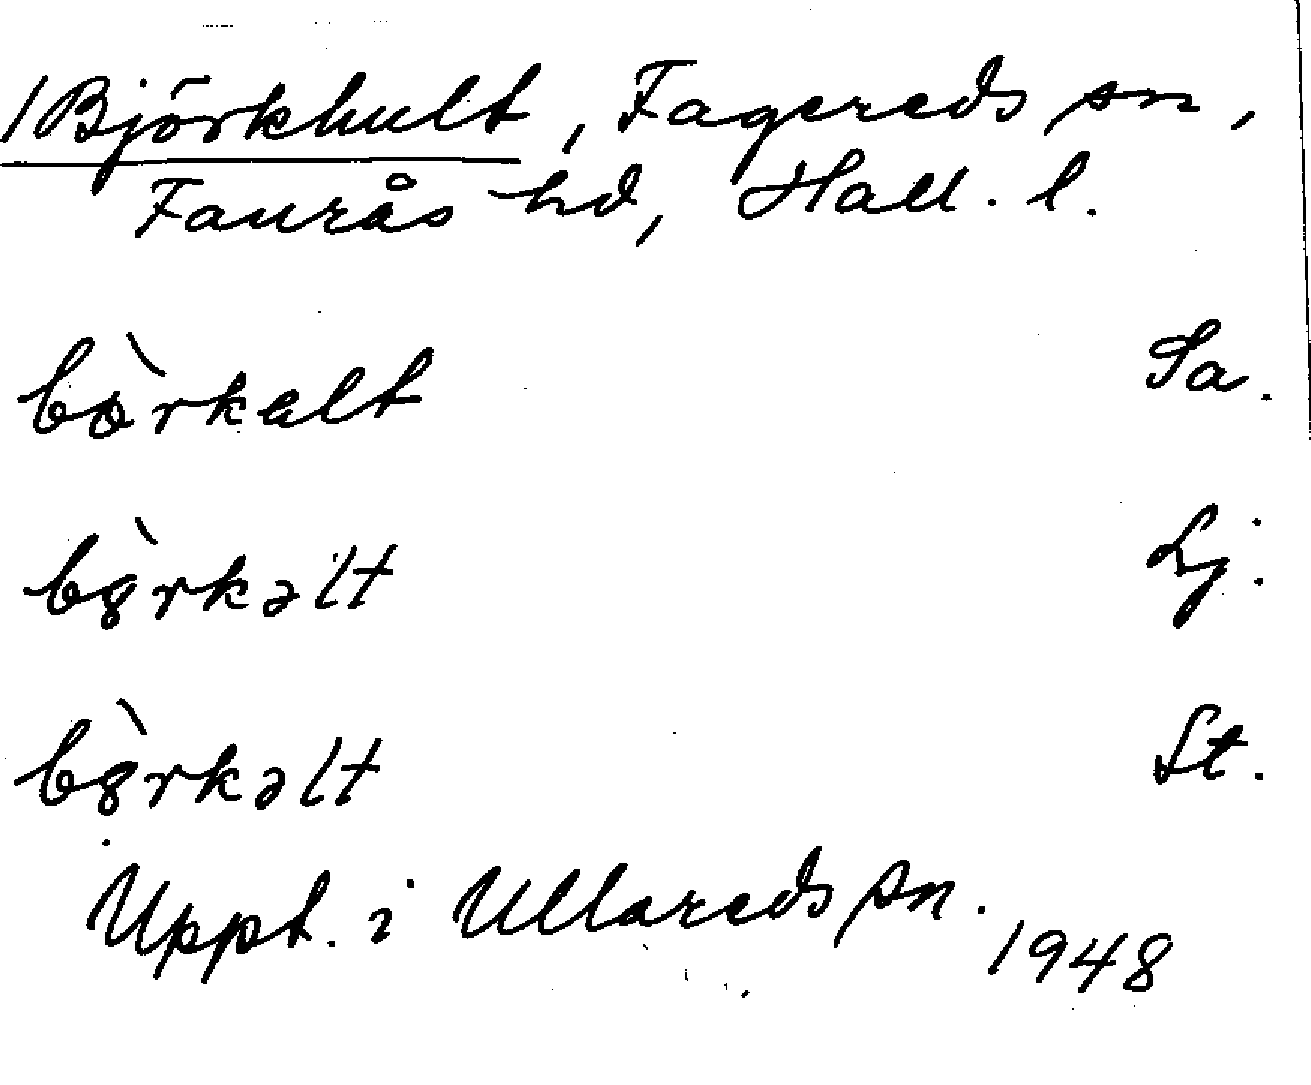 /Björkhult, Fagereds sn,
Faurås hd, Hall. l.
bò̀rkalt Sa.
bò̀rkəlt Lj.
bò̀rkəlt St.
Uppt. i Ullareds sn. 1948